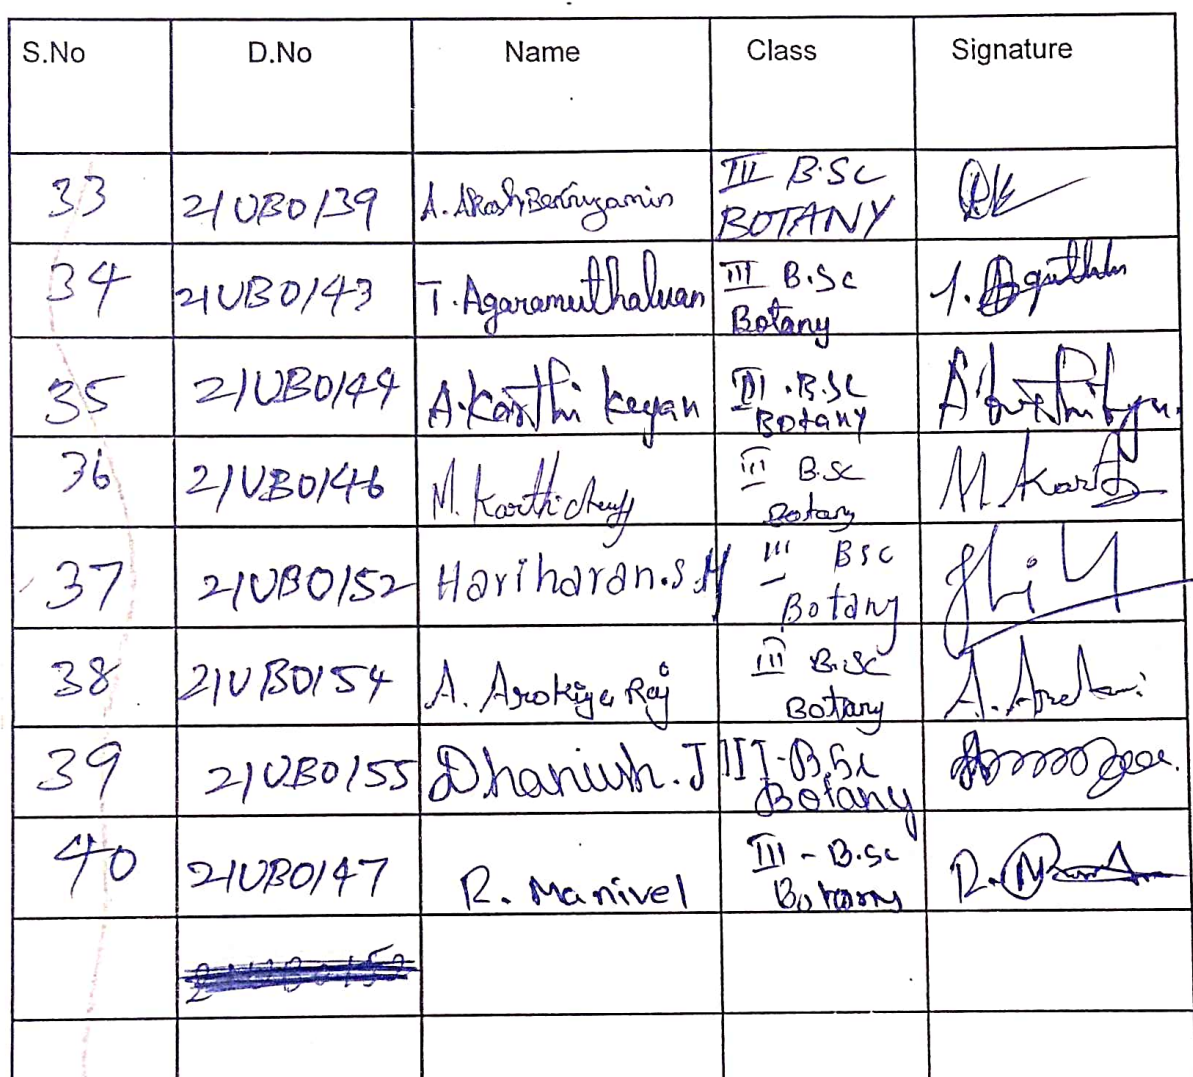 S.No D.No Name Class Signature
33 21UBO139 A. Akash Benniyamin III B.Sc
BOTANY
34 21UBO143 T. Agaramuthaluan III B.Sc
Botany
35 21UBO144 A. Karthi keyan III B.Sc
Botany
36 21UBO146 M. Karthick III B.Sc M. Kart
Botany
37 21UBO152 Hariharan.S.M III BSc
Botany
38 21UBO154 A. Arokiya Raj III B.Sc
Botany
39 21UBO155 Dhanush.J III-B.Sc
Botany
40 21UBO147 R. Manivel III - B.Sc
Botany